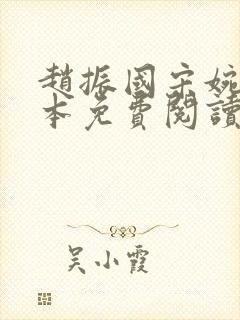 趙振國宋婉
本免費閱讀
吴小霞